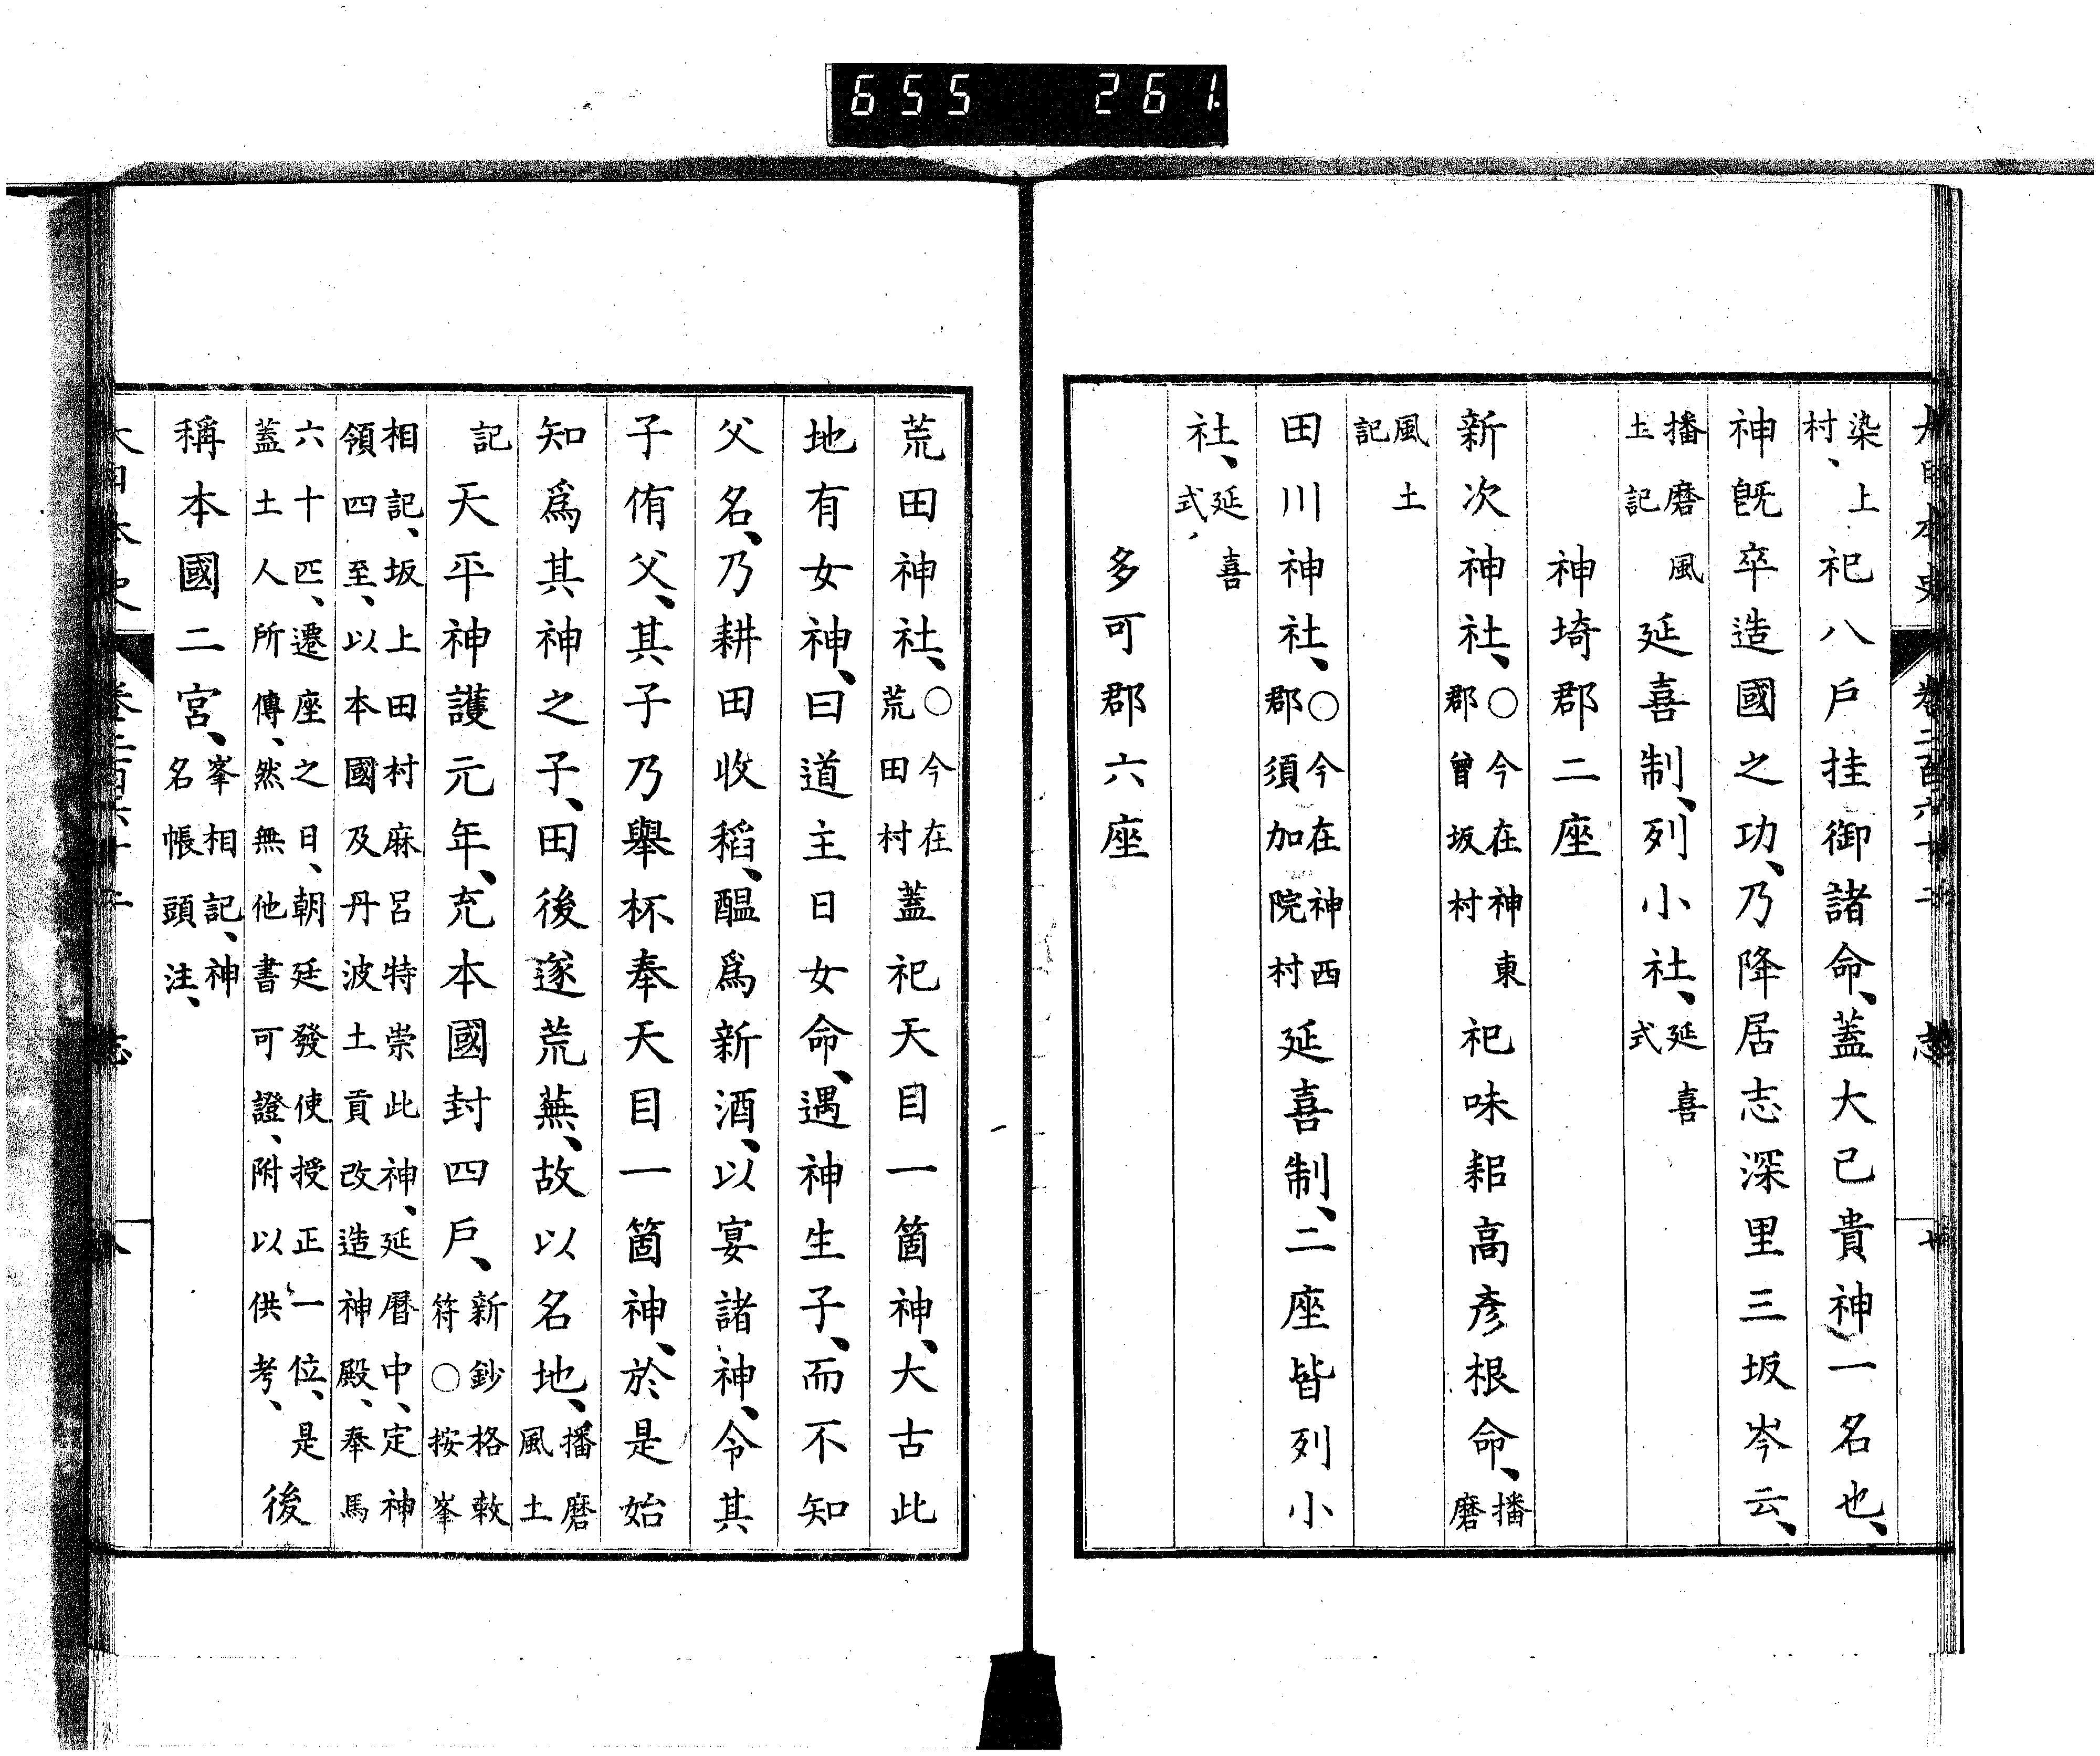 655 261
染上村、祀八戶挂御諸命、蓋大己貴神一名也、
神旣卒造國之功、乃降居志深里三坂岑云、
播磨風土記延喜制、列小社、延喜式
神埼郡二座
新次神社、○今在神東郡曾坂村祀味耜高彥根命、播磨
風土記
田川神社、○今在神西郡須加院村延喜制、二座皆列小
社、延喜式、
多可郡六座
荒田神社、○今在荒田村蓋祀天目一箇神、大古此
地有女神、曰道主日女命、遇神生子、而不知
父名、乃耕田收稻、醞爲新酒、以宴諸神、令其
子侑父、其子乃舉杯奉天目一箇神、於是始
知爲其神之子、田後遂荒蕪、故以名地、播磨風土
記天平神護元年、充本國封四戶、新鈔格敕符○按峯
相記、坂上田村麻呂特崇此神、延曆中、定神領四至、以本國及丹波土貢改造神殿、奉馬
六十匹、遷座之日、朝廷發使授正一位、是蓋土人所傳、然無他書可證、附以供考、後
稱本國二宮、峯相記、神名帳頭注、